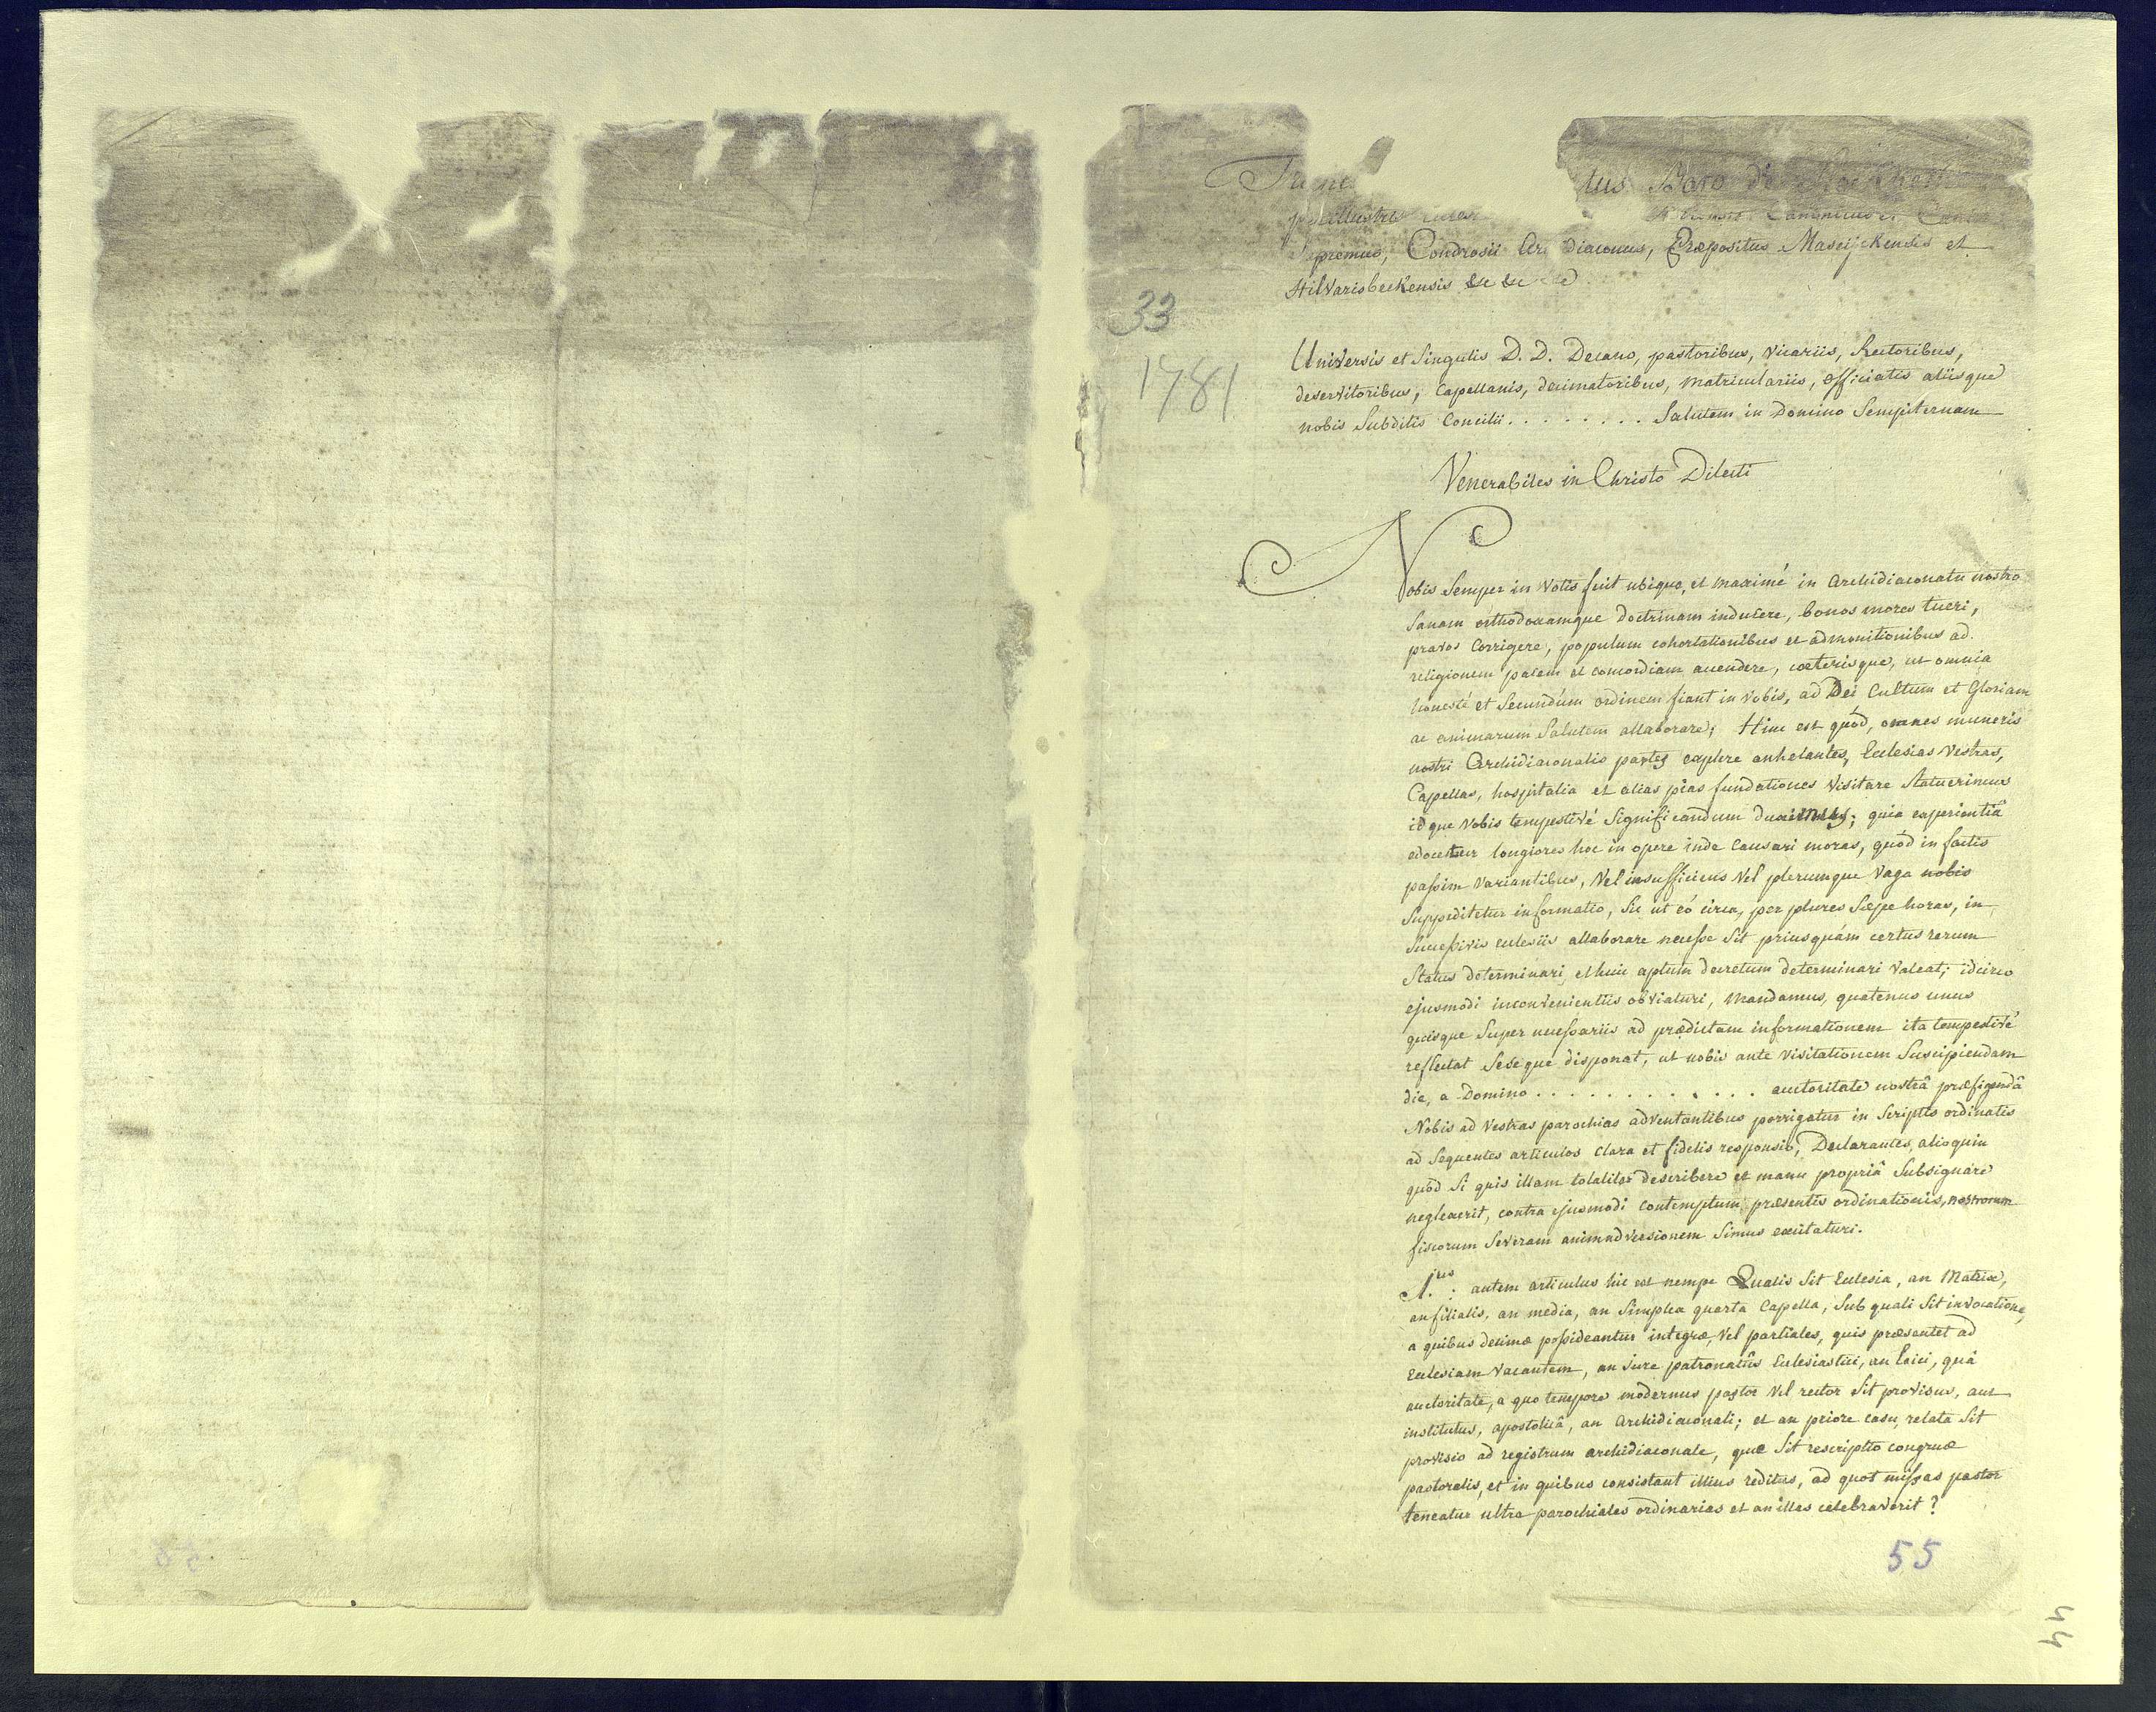 tus Baro de
perillustris
Supremus, Condrosii Archidiaconus, Præpositus Maseijckensis et
Hilvarisbeekensis &c &c &c
33
1781
Universis et Singulis D. D. Decano, pastoribus, vicariis, Rectoribus,
deservitoribus, Capellanis, decimatoribus, matriculariis, officiatis aliisque
nobis Subditis Concilii . . . . . . . . Salutem in Domino Sempiternam
Venerabiles in Christo Dilecti
Nobis Semper in Votis fuit ubique, et maximé in Archidiaconatu nostro
Sanam orthodoxamque doctrinam inducere, bonos mores tueri,
pravos Corrigere, populum cohortationibus et admonitionibus ad
religionem pacem et concordiam accendere, cœterisque, ut omnia
honesté et Secundúm ordinem fiant in vobis, ad Dei Cultum et Gloriam
ac animarum Salutem allaborare; Hinc est quód, omnes muneris
nostri Archidiaconalis partes explere anhelantes, Ecclesias Vestras,
Capellas, hospitalia et alias pias fundationes Visitare Statuerimus
idque Vobis tempestivé Significandum duximus; quia experientiâ
edocemur longiores hoc in opere inde Causari moras, quód in factis
passim Variantibus, Vel insufficiens Vel plerumque Vaga nobis
Suppeditetur informatio, Sic ut eó circa, per plures Sæpe horas, in
Successivis ecclesiis allaborare necesse Sit priusquám certus rerum
Status determinari, et huic aptum decretum determinari Valeat; idcirco
ejusmodi inconvenientiis obviaturi, Mandamus, quatenus unus
quisque Super necessariis ad prædictam informationem ita tempestivé
reflectat Seseque disponat, ut nobis ante Visitationem Suscipiendam
die, a Domino . . . . . . . . . . . . auctoritate nostrâ præfigendâ
Nobis ad Vestras parochias adventantibus porrigatur in Scriptis ordinatis
ad Sequentes articulos clara et fidelis responsio, Declarantes, alioquin
quód Si quis illam totaliter describere et manu propriâ Subsignare
neglexerit, contra ejusmodi Contemptum præsentis ordinationis, nostrorum
fiscorum Severam animadversionem Simus excitaturi.
1.us : autem articulus hic est nempe Qualis Sit Ecclesia, an Matrix,
an filialis, an media, an Simplex quarta Capella, Sub quali Sit invocatione,
a quibus decimæ possideantur integræ, Vel partiales, quis præsentet ad
Ecclesiam Vacantem, an Jure patronatûs Ecclesiastici, an Laici, quâ
auctoritate, a quo tempore modernus pastor Vel rector Sit provisus, aut
institutus, apostolicâ, an Archidiaconali; et an priore casu, relata Sit
provisio ad registrum archidiaconale, quæ Sit rescriptio congruæ
pastoralis, et in quibus consistant illius reditus, ad quot missas pastor
teneatur ultra parochiales ordinarias et an illas celebraverit ?
55
44